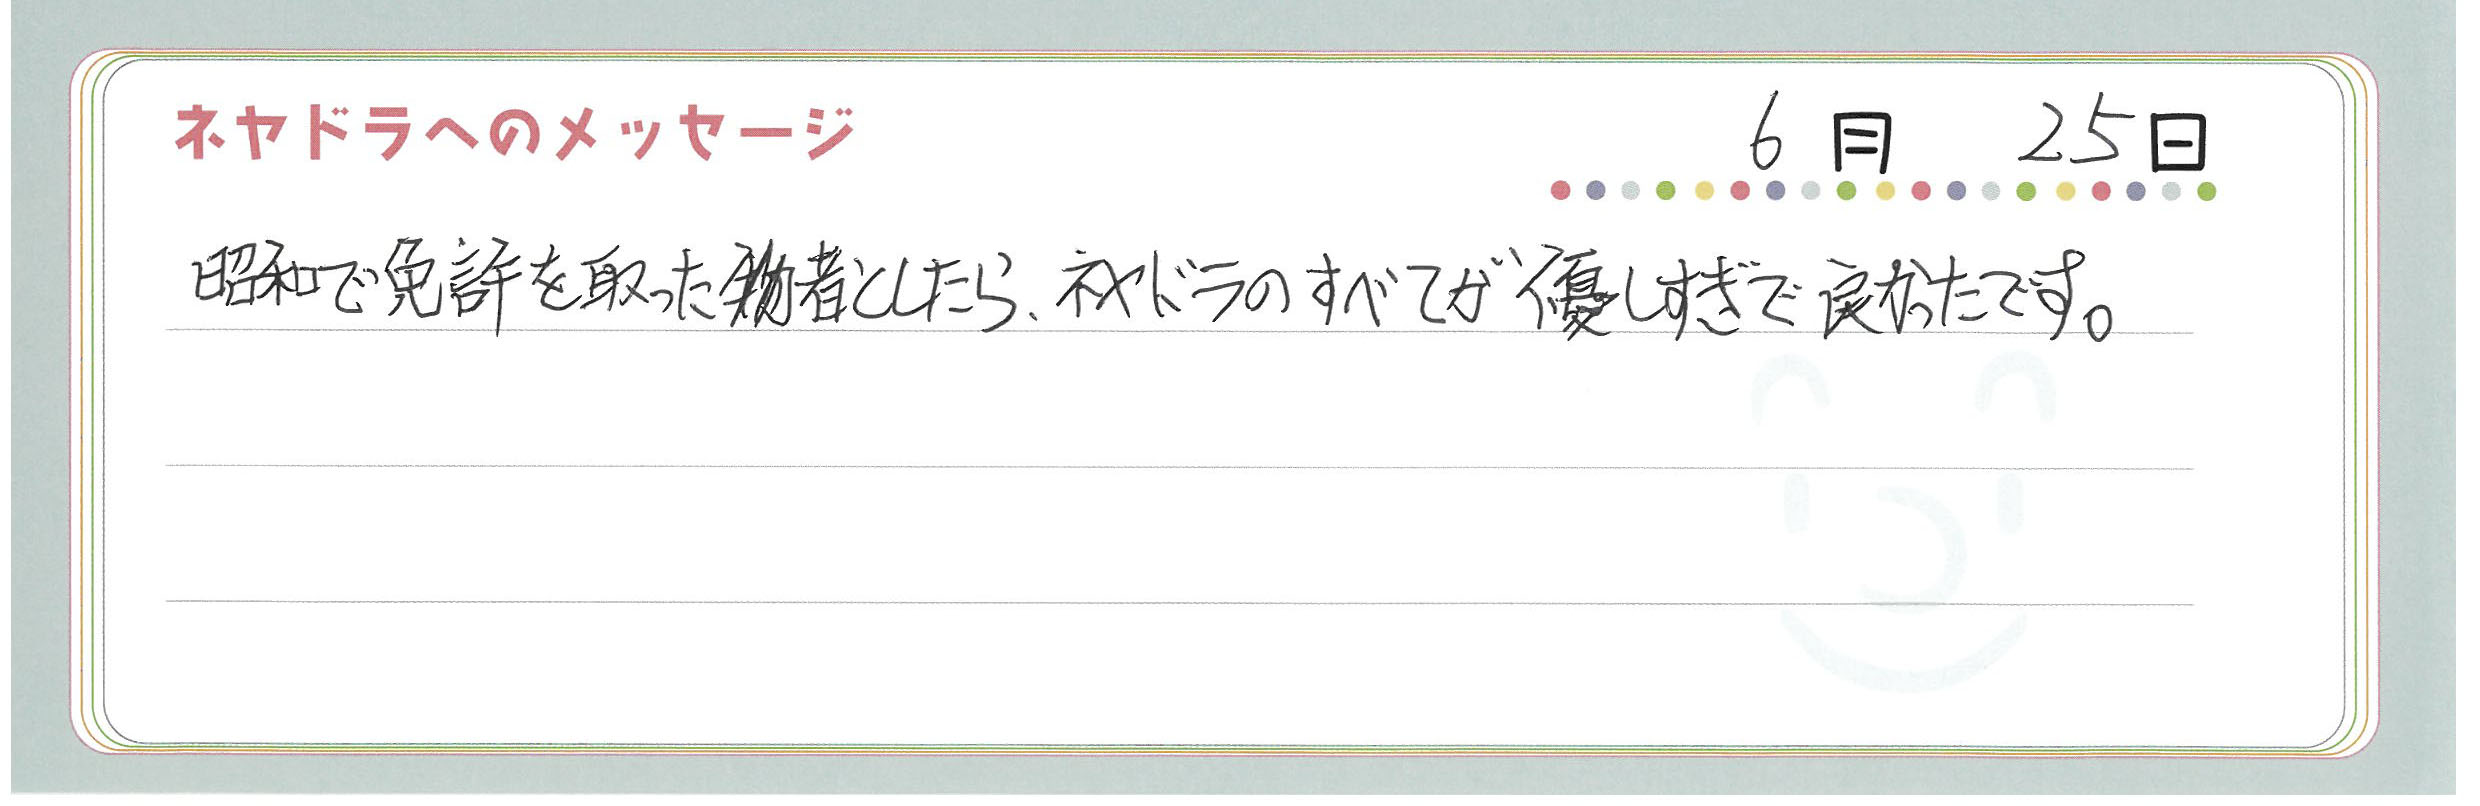 ネヤドラへのメッセージ
6月 25日
昭和で免許を取った者としたら、ネヤドラのすべてが優しすぎで良かったです。